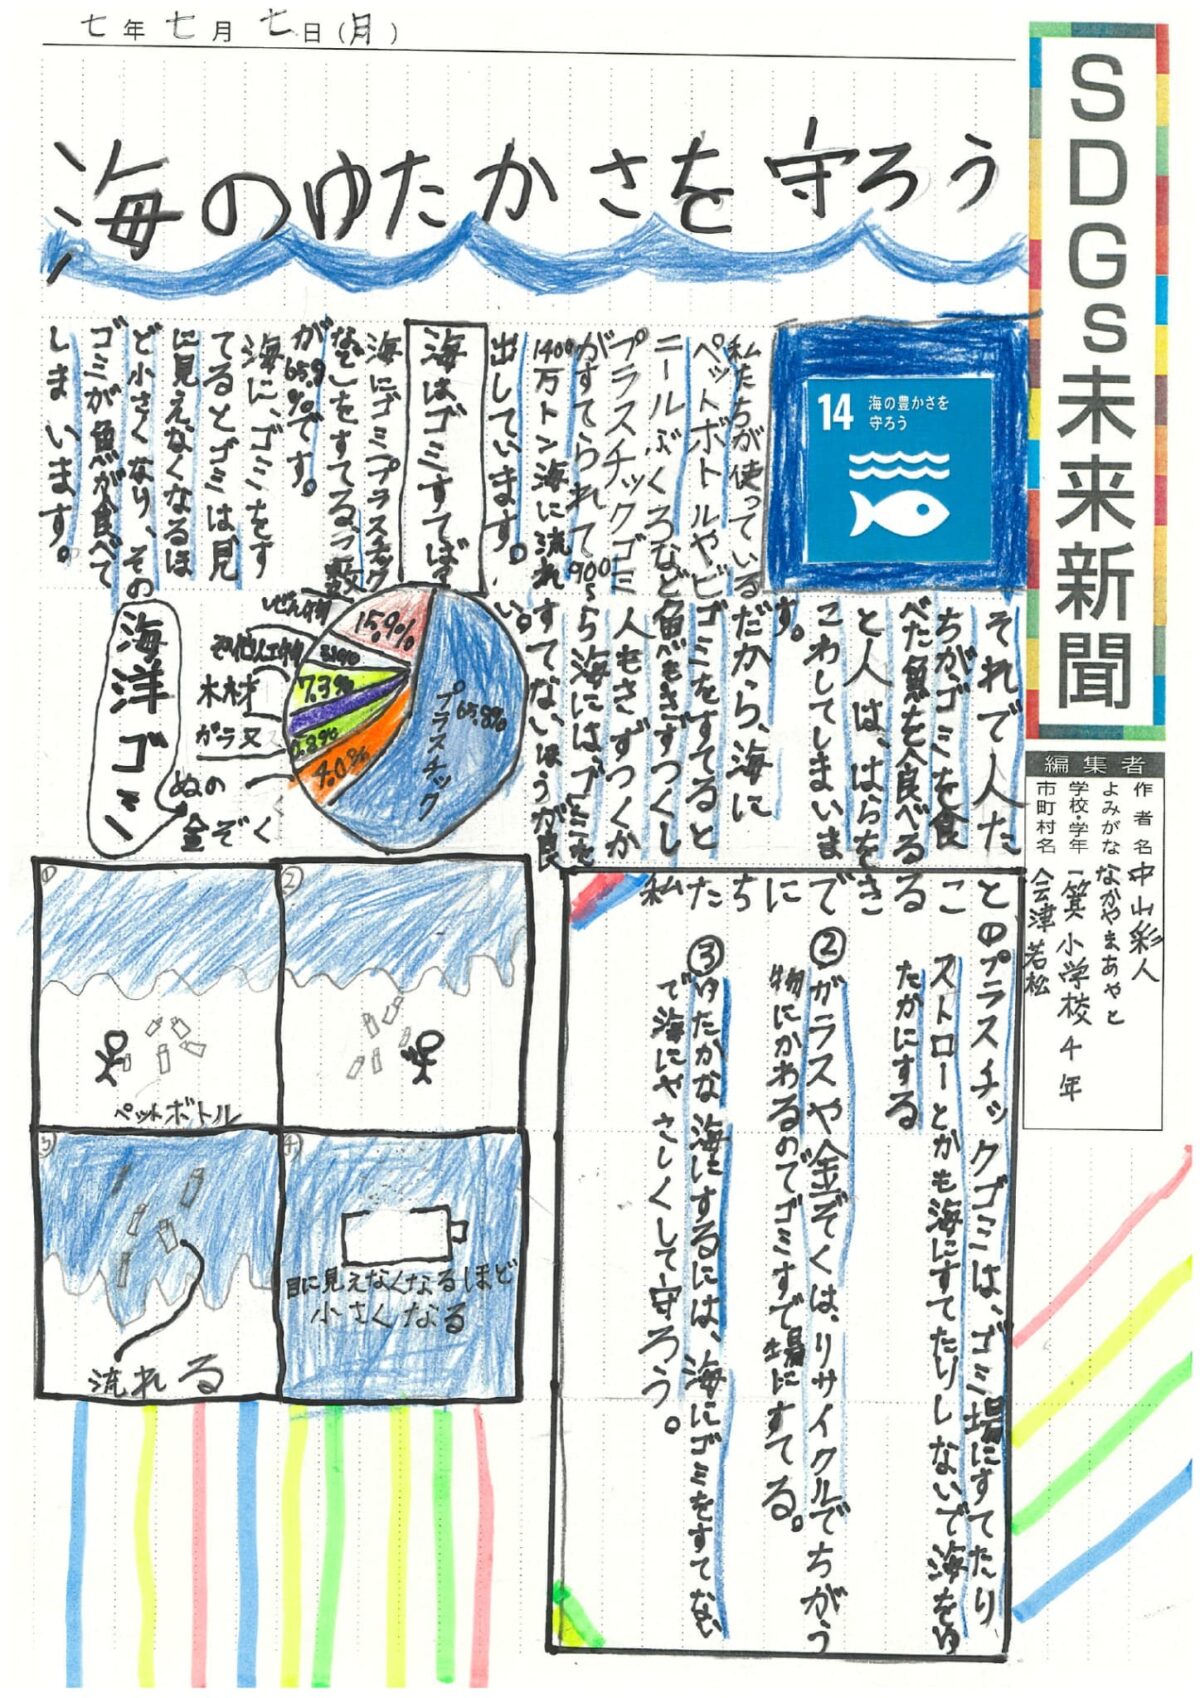 SDGs未来新聞
編集者
作者名 中山彩人
よみがな なかやまあやと
学校・学年 一箕小学校4年
市町村名 会津若松
七年七月七日(月)
海のゆたかさを守ろう
14 海の豊かさを
守ろう
私たちが使っている
ペットボトルやビ
ニールぶくろなど
プラスチックゴミ
がすてられて900~
1400万トン海に流れ
出しています。
海はゴミすてば
海にゴミプラスチック
などをすてる、
が65.8%です。
海に、ゴミをす
てるとゴミは見
に見えなくなるほ
ど小さくなり、その
ゴミが魚が食べて
しまいます。
それで人た
ちがゴミを食
べた魚を食べる
と人は、はらを
こわしてしまいま
す。
だから、海に
ゴミをすてると
魚もきずつくし
人もきずつくか
ら海には、ゴミを
すてないほうが良
い。
海洋ゴミ
プラスチック
65.8%
15.9%
7.3%
0.8%
4.0%
木材
ガラス
ぬの
金ぞく
①
ペットボトル
②
③
流れる
④
目に見えなくなるほど
小さくなる
私たちにできること
①プラスチックゴミは、ゴミ場にすてたり
ストローとかも海にすてたりしないで海をゆ
たかにする
②ガラスや金ぞくは、リサイクルでちがう
物にかわるのでゴミすて場にすてる。
③ゆたかな海にするには、海にゴミをすてない
で海にやさしくして守ろう。